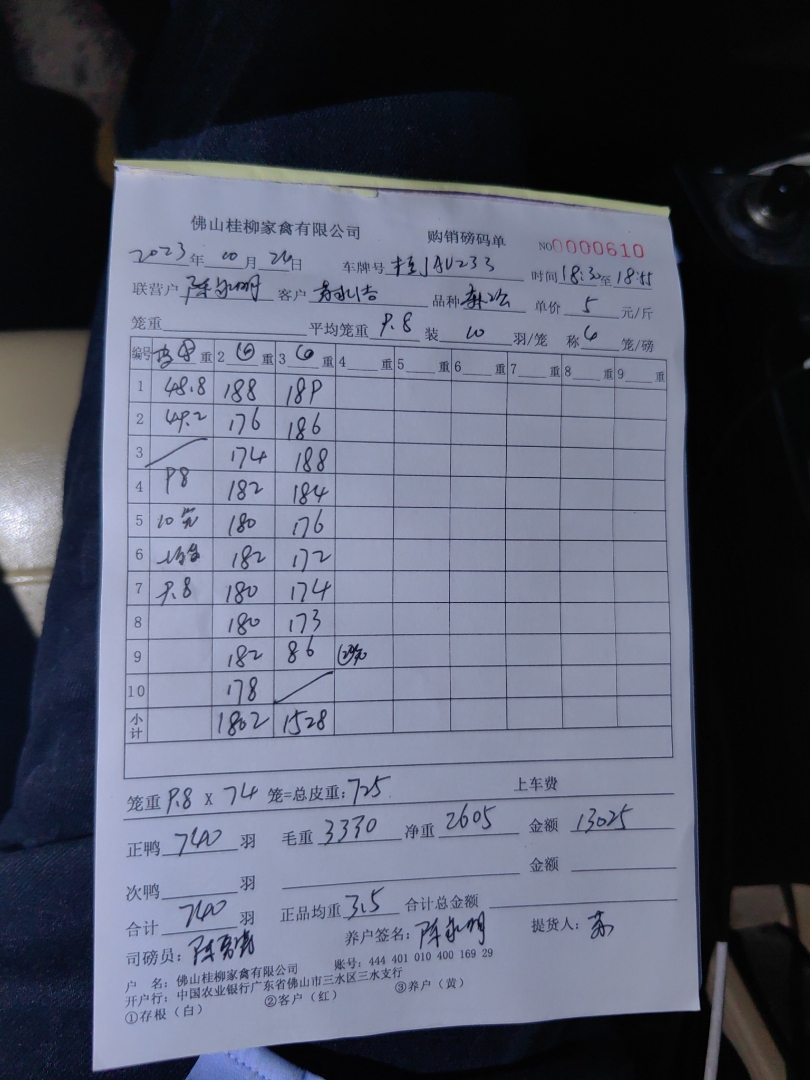 佛山桂柳家禽有限公司 购销磅码单 NO0000610
2023年10月 日 车牌号 桂JAU233 时间18:30至18:45
联营户 陈 明 客户 品种 单价 5 元/斤
笼重 平均笼重 9.8 装 10 羽/笼 称 6 笼/磅
编号 重 2 6 重 3 6 重 4 重 5 重 6 重 7 重 8 重 9 重
1 48.8 188 189
2 49.2 176 186
3 174 188
4 98 182 184
5 10笼 180 176
6 182 172
7 9.8 180 174
8 180 173
9 182 86
10 178
小计 1802 1528
笼重 9.8 x 74 笼=总皮重: 725 上车费
正鸭 740 羽 毛重 3330 净重 2605 金额 13025
次鸭 羽 金额
合计 740 羽 正品均重 3.5 合计总金额
司磅员: 陈 养户签名: 陈 明 提货人:
户 名: 佛山桂柳家禽有限公司 账号: 444 401 010 400 169 29
开户行: 中国农业银行广东省佛山市三水区三水支行
①存根（白） ②客户（红） ③养户（黄）